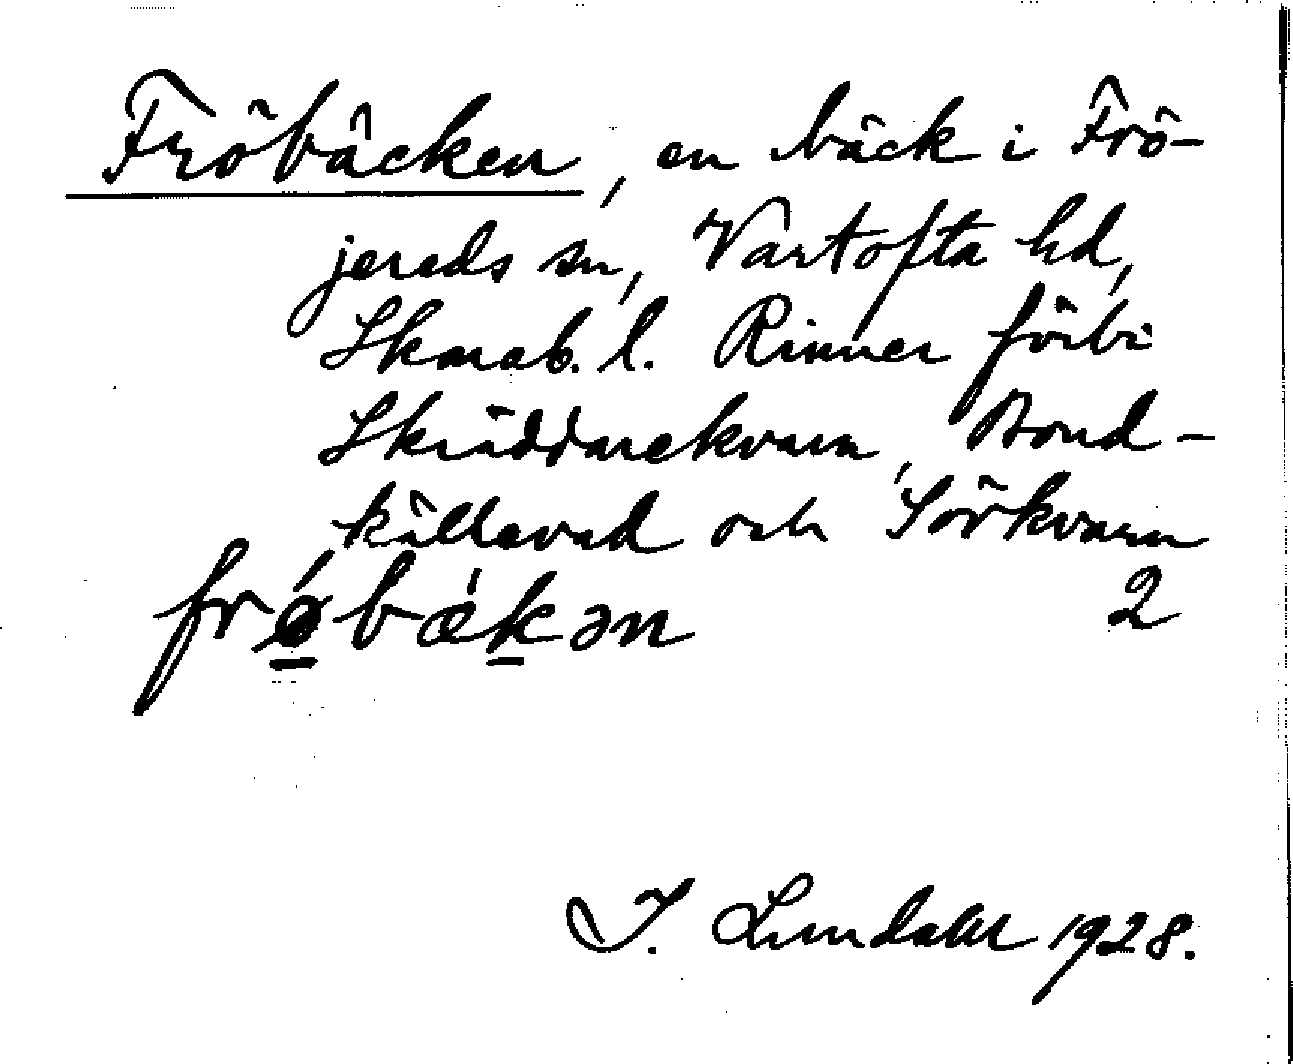 Fröbäcken, en bäck i Frö-
jereds sn, Vartofta hd,
Skarab. l. Rinner förbi
Skräddarekvarn, Bond-
källevad och Sörkvarn
frǿbækən 2
I. Lundahl 1928.